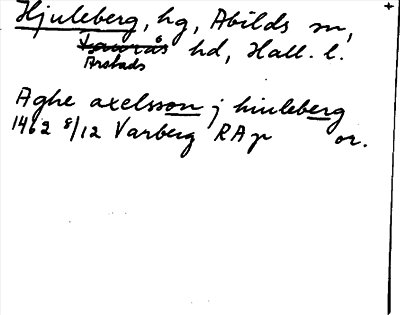 Hjuleberg, hg, Abilds sn,
Faurås hd, Hall. l.
Årstads
Aghe axelsson j hiuleberg
1462 8/12 Varberg RAp or.